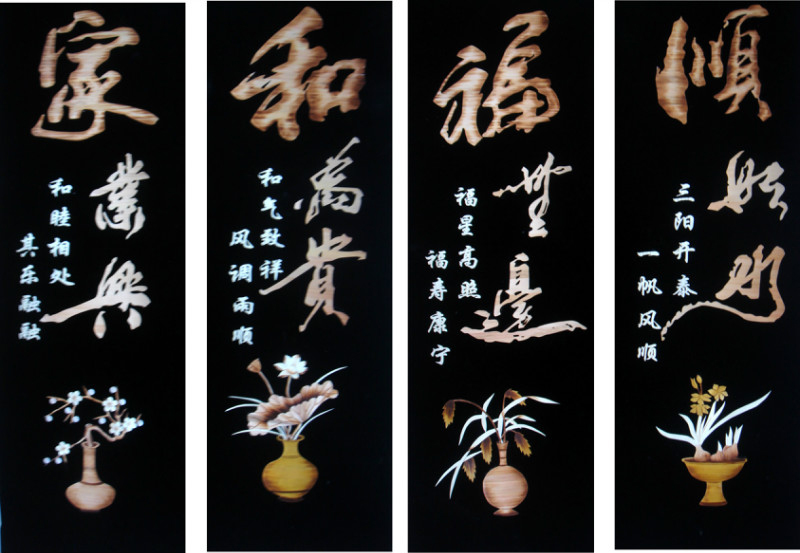 家
業興
和睦相处
其乐融融
和
為貴
和气致祥
风调雨顺
福
無邊
福星高照
福寿康宁
順
三阳开泰
一帆风顺